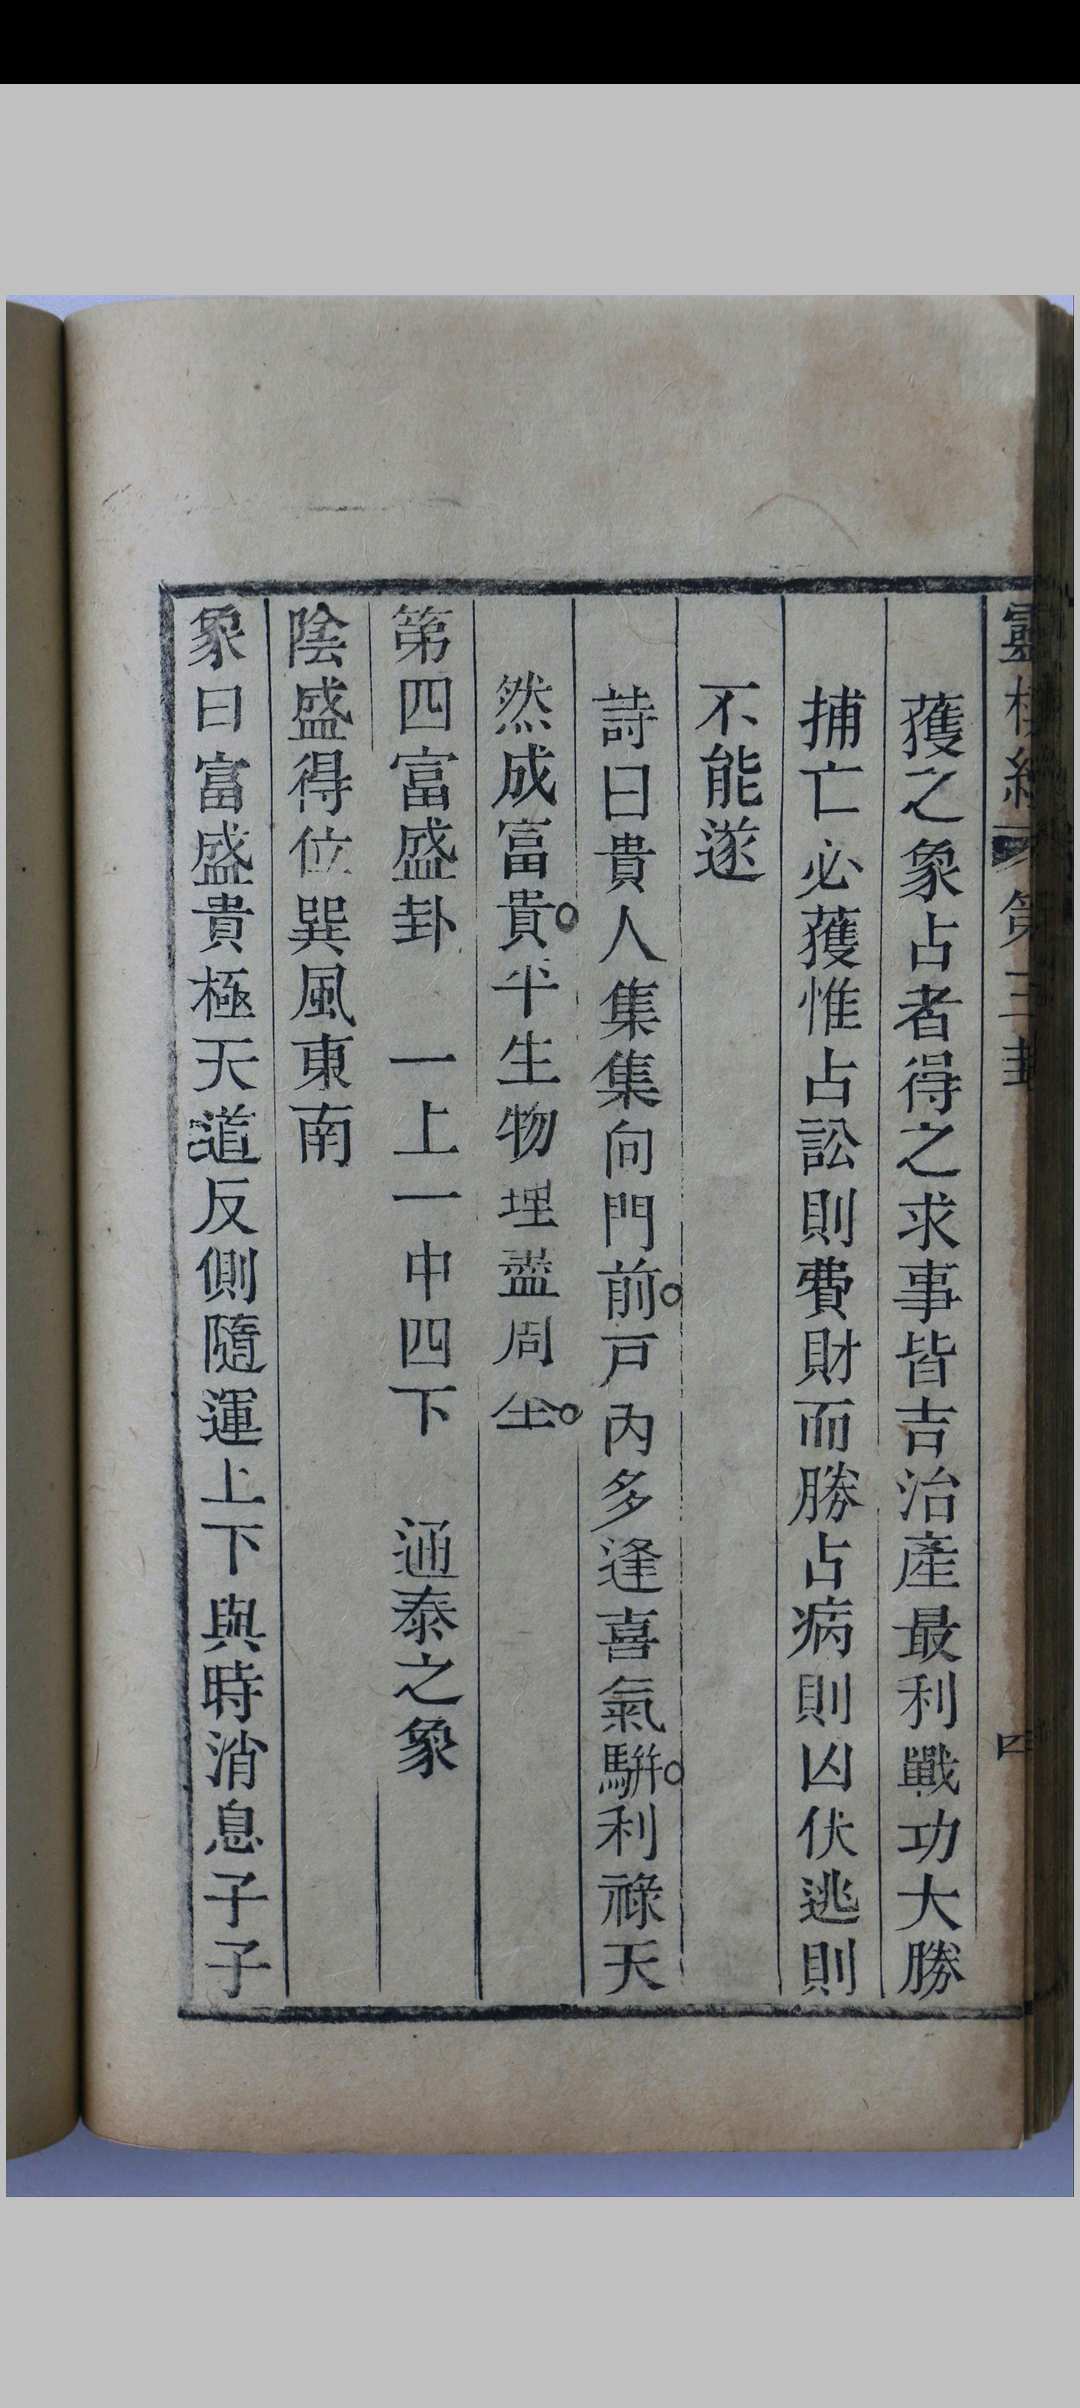 靈棋經 第三卦 四
獲之象占者得之求事皆吉治產最利戰功大勝
捕亡必獲惟占訟則費財而勝占病則凶伏逃則
不能遂
詩曰貴人集集向門前戶內多逢喜氣騈利祿天
然成富貴半生物埋盡周全
第四富盛卦 一上一中四下 通泰之象
陰盛得位巽風東南
象曰富盛貴極天道反側隨運上下與時消息子子